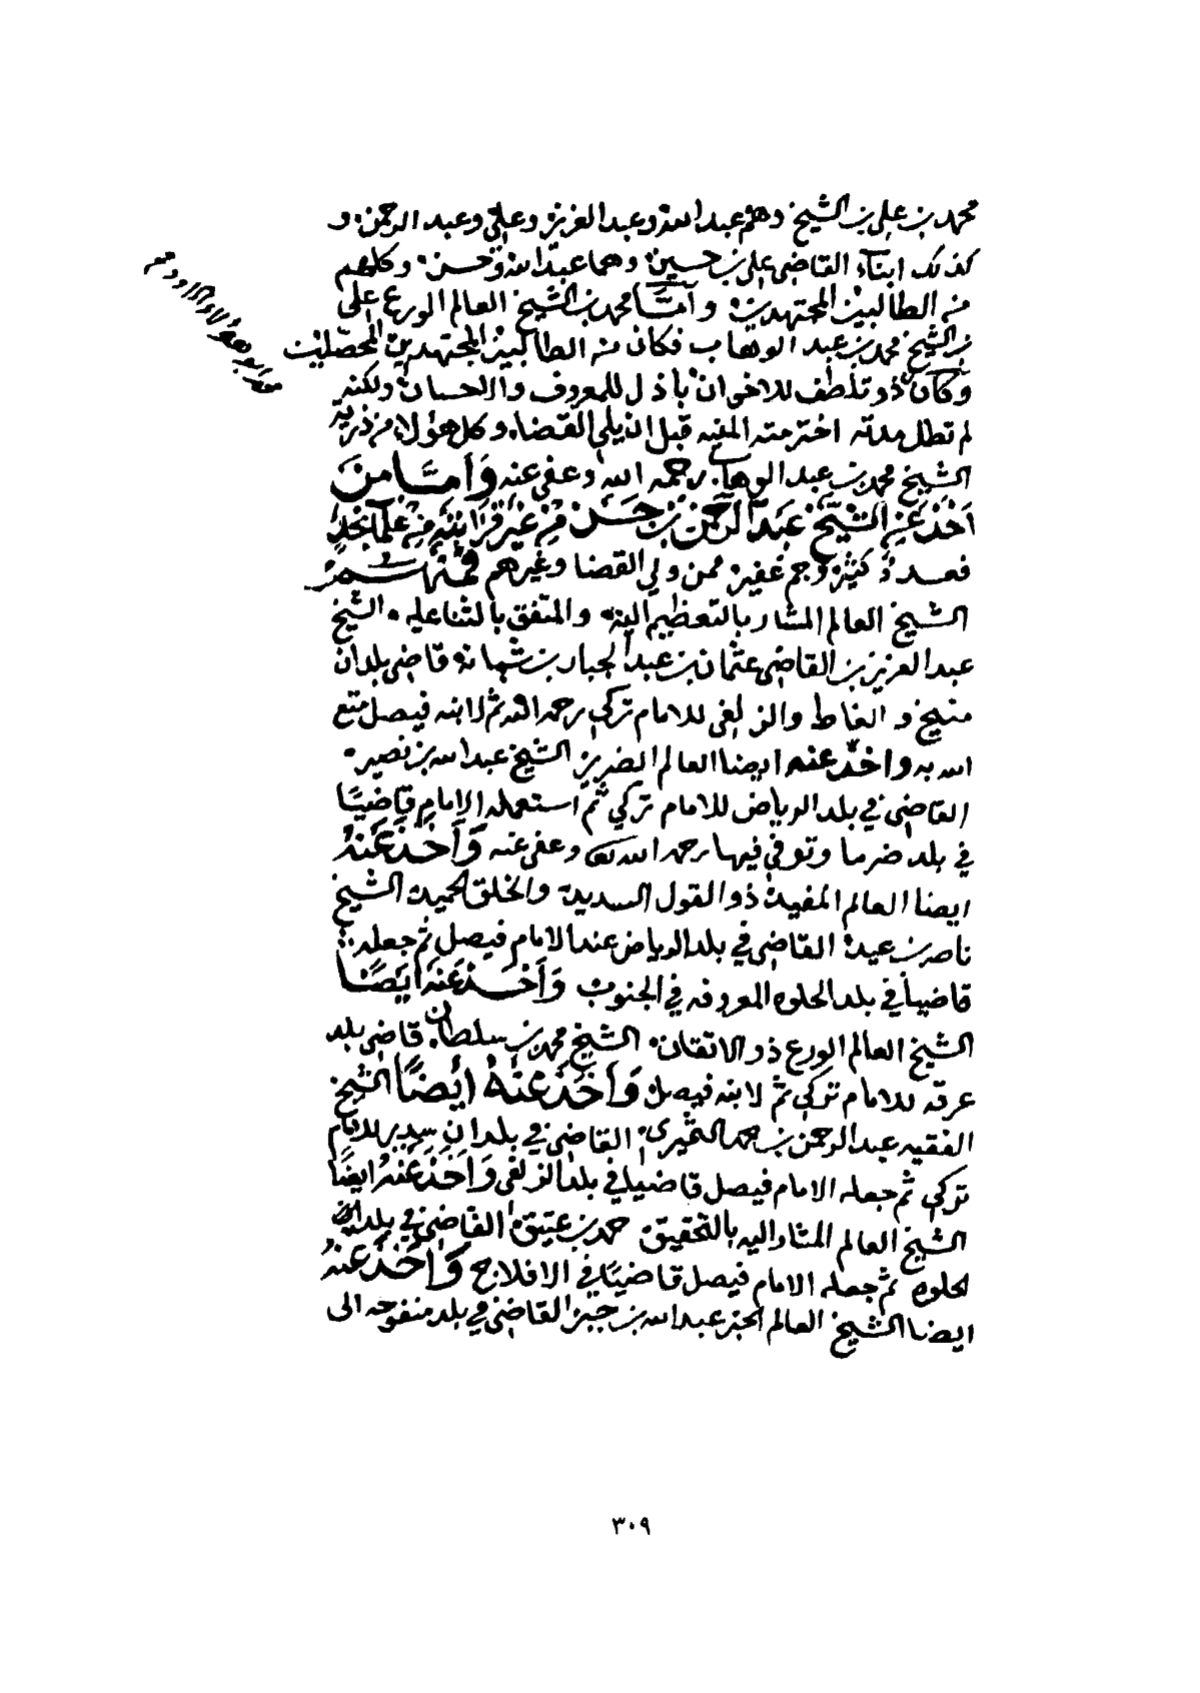 محمد بن علي بن الشيخ وهم عبد الله وعبد العزيز وعلي وعبد الرحمن و
كذلك ابناء القاضي علي بن حسين وهما عبد الله وحسن وكلهم
من الطالبين المجتهدين وأمّا محمد بن الشيخ العالم الورع علي
بن الشيخ محمد بن عبد الوهاب فكان من الطالبين المجتهدين المحصلين
وكان ذو تلطف للاخوان باذل للمعروف والاحسان ولكنه
لم تطل مدته اخترمته المنيه قبل ان يلي القضاء وكل هؤلاء من ذرية
الشيخ محمد بن عبد الوهاب رحمه الله وعفى عنه وَأَمَّا مَنْ
أَخَذَ عَنِ الشَّيْخِ عَبْدِ الرَّحْمنِ بْنِ حَسَنْ مِنْ غَيْرِ قَرَابَتِهِ مِنْ عُلَمَآءِ نَجْدٍ
فعددٌ كثير وجم غفير ممن ولي القضا وغيرهم فَمِنْهُمْ
الشيخ العالم المشار بالتعظيم اليه والمتفق بالثنا عليه الشيخ
عبد العزيز بن القاضي عثمان بن عبد الجبار بن شبانه قاضي بلدان
منيخ و الغاط والزلفي للامام تركي رحمه الله ثم لابنه فيصل متع
الله به واخذ عنه ايضا العالم الضرير الشيخ عبد الله بن نصير
القاضي في بلد الرياض للامام تركي ثم استعمله الإمام قاضيًا
في بلد ضرما وتوفي فيها رحمه الله تعالى وعفى عنه وَأَخَذَ عَنْهُ
ايضا العالم المفيد ذو القول السديد والخلق الحميد الشيخ
ناصر بن عيد القاضي في بلد الرياض عند الامام فيصل ثم جعله
قاضياً في بلد الحلوه المعروفه في الجنوب وَأَخَذَ عَنْهُ أَيْضًا
الشيخ العالم الورع ذو الاتقان الشيخ محمد بن سلطان قاضي بلد
عرقه للامام تركي ثم لابنه فيصل وَأَخَذَ عَنْهُ أَيْضًا الشيخ
الفقيه عبد الرحمن بن حمد الثميري القاضي في بلدان سدير للامام
تركي ثم جعله الامام فيصل قاضيا في بلد الزلفي وَأَخَذَ عَنْهُ ايضًا
الشيخ العالم المشار اليه بالتحقيق حمد بن عتيق القاضي في بلدان
الحلوه ثم جعله الامام فيصل قاضيًا في الافلاج وَأَخَذَ عَنْهُ
ايضا الشيخ العالم الحبر عبد الله بن جبر القاضي في بلد منفوحه الى
٣٠٩